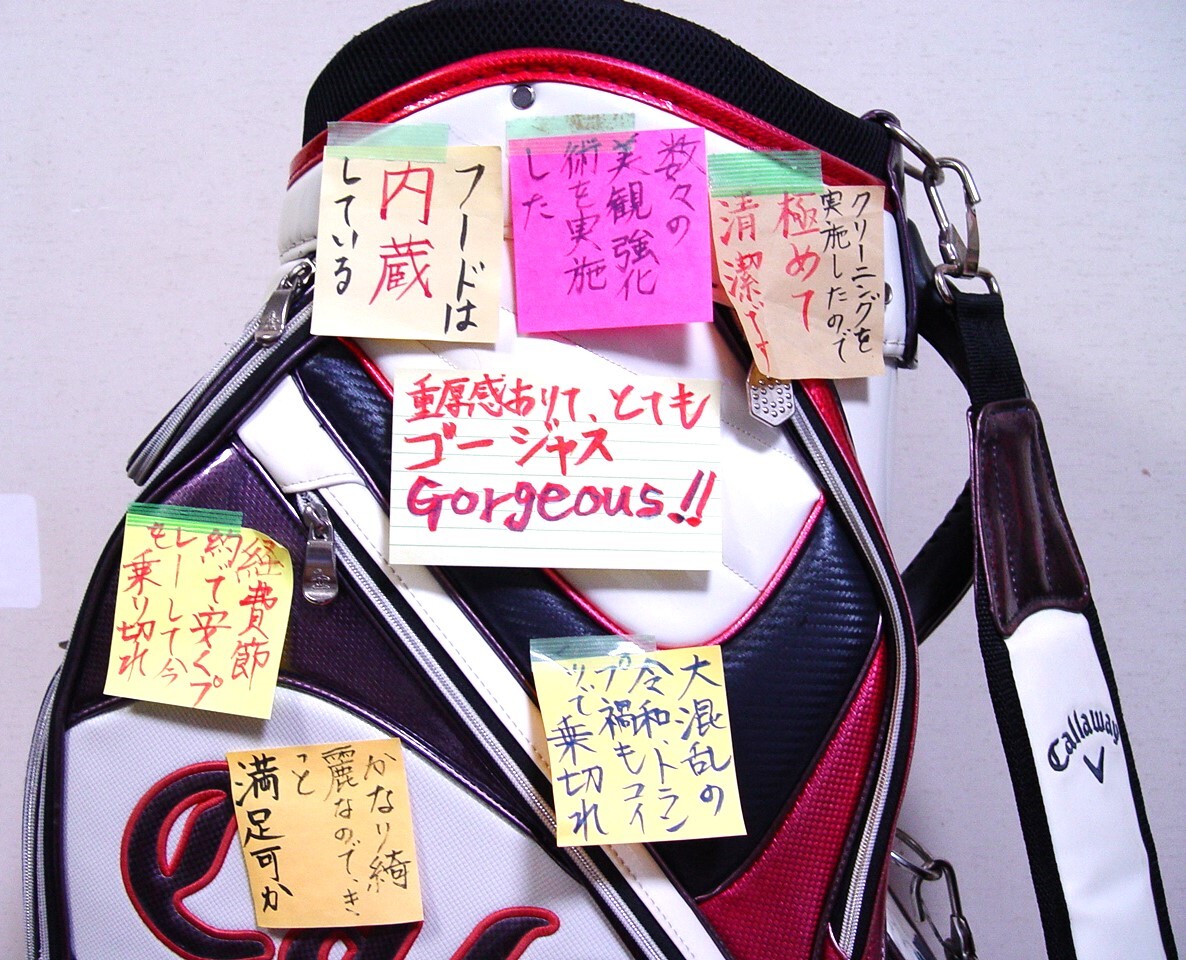 フードは
内蔵
している
数々の
美観強化
術を実施
した
クリーニングを
実施したので
極めて
清潔です
重厚感ありて、とても
ゴージャス
Gorgeous!!
経費節
約て安くプ
レーして今
を乗り切れ
大混乱の
令和トラン
プ禍もコイ
ツで乗切れ
かなり綺
麗なので、き
っと
満足可か
Callaway